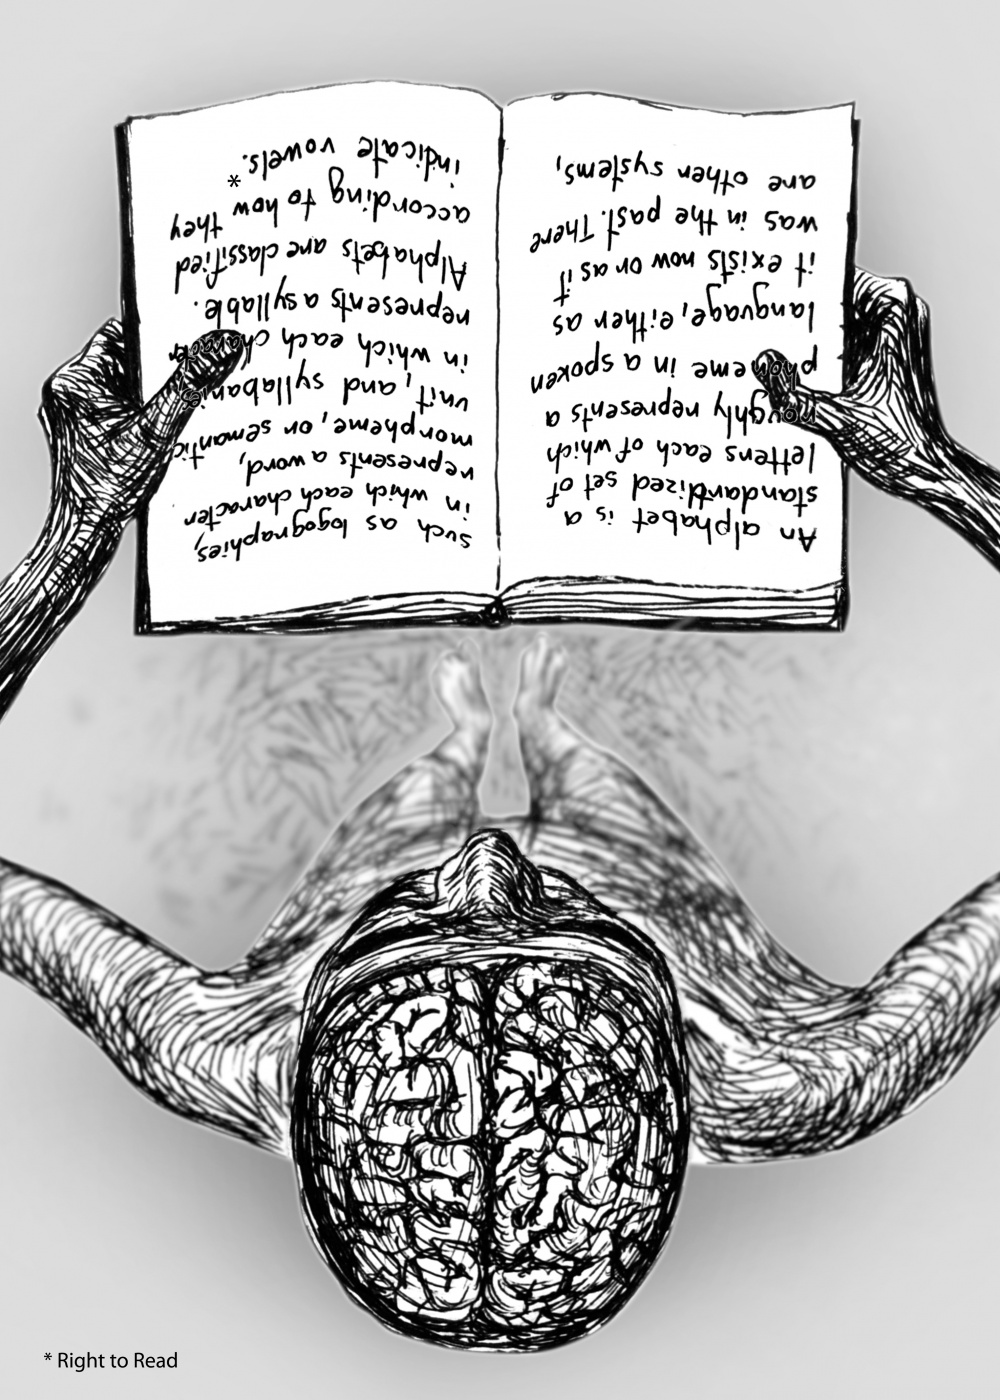 An alphabet is a
standardized set of
letters each of which
roughly represents a
phoneme in a spoken
language, either as
it exists now or as it
was in the past. There
are other systems,
such as logographies,
in which each character
represents a word,
morpheme, or semantic
unit, and syllabaries
in which each character
represents a syllable.
Alphabets are classified
according to how they
indicate vowels.*
* Right to Read